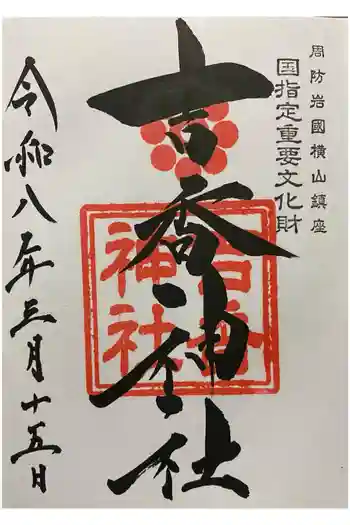 周防岩國横山鎮座
国指定重要文化財
吉香神社
吉香神社
令和八年三月十五日